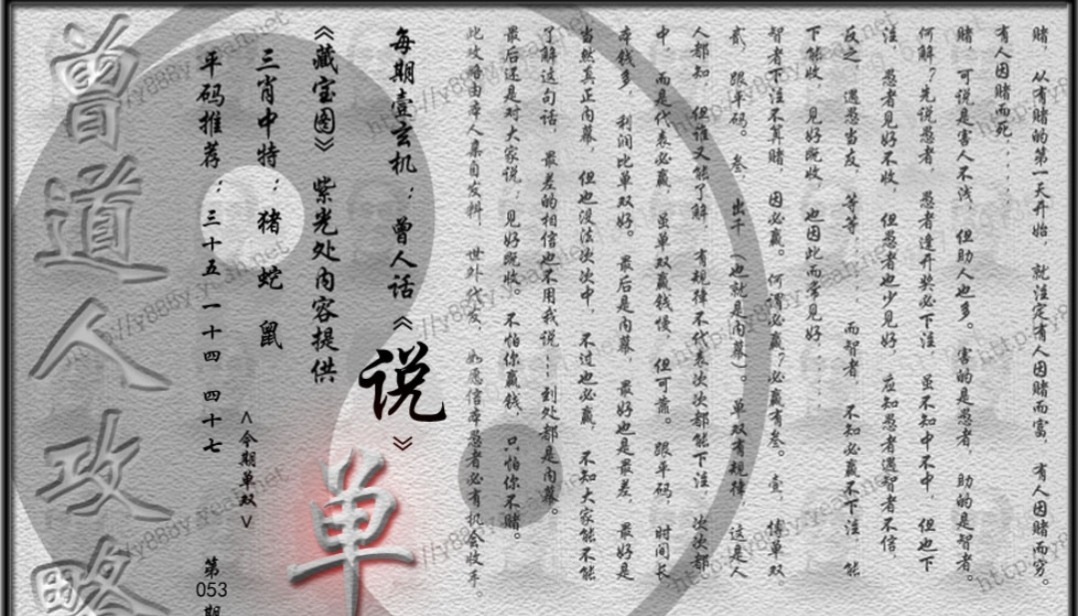 赌，从有赌的第一天开始，就注定有人因赌而富，有人因赌而穷。
有人因赌而死．．．．
赌，可说是害人不浅，但助人也多。害的是愚者，助的是智者。
何解？先说愚者，愚者逢开奖必下注，虽不知中不中，但也下
注，愚者见好不收，但愚者也少见好，应知愚者遇智者不信，
反之，遇愚当友，等等，．．．．而智者，不知必赢不下注，能
下能收，见好既收，也因此而常见好．．．．
智者下注不算赌，因必赢。何谓必赢？必赢有叁。壹，博单双
贰，跟单码。叁，出千（也就是内幕）。单双有规律，这是人
人都知，但谁又能了解，有规律不代表次次都能下注，次次都
中，而是代表必赢，虽单双赢钱慢，但可靠。跟单码，时间长
本钱多，利润比单双好。最后是内幕，最好也是最差，最好是
当然真正内幕，但也没法次次中，不过也必赢，不知大家能不能
了解这句话，最差的相信也不用我说…到处都是内幕。
最后还是对大家说，见好既收。不怕你赢钱，只怕你不赌。
此攻略由本人亲自发料，世外代发，如愿信本愚者必有机会收手。
每期壹玄机：曾人话《说》
《藏宝图》 紫光处内容提供
三肖中特：猪 蛇 鼠
<今期单双>
单
平码推荐：三十五 一十四 四十七
第053期
曾道人攻略
http://y888y.yeah.net